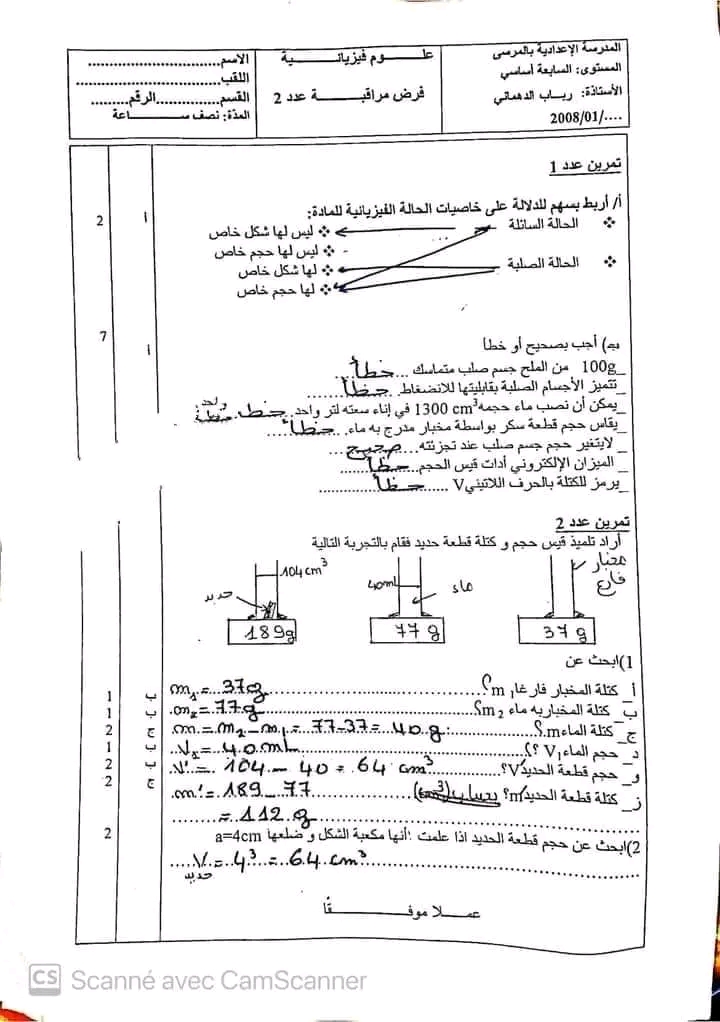 المدرسة الإعدادية بالمرسى
المستوى: السابعة أساسي
الأستاذة: رباب الدهماني
..../2008/01
علـــــوم فيزيائـــــية
فرض مراقبـــــة عدد 2
الاسم...............................
اللقب...............................
القسم...............الرقم.........
المدة: نصف ســـــاعة
تمرين عدد 1
أ/ أربط بسهم للدلالة على خاصيات الحالة الفيزيائية للمادة:
الحالة السائلة
ليس لها شكل خاص
ليس لها حجم خاص
الحالة الصلبة
لها شكل خاص
لها حجم خاص
أ
2
ب) أجب بصحيح أو خطأ
أ
7
_100g من الملح جسم صلب متماسك ...خطأ...
_تتميز الأجسام الصلبة بقابليتها للانضغاط..خطأ......
_يمكن أن نصب ماء حجمه1300 cm³ في إناء سعته لتر واحد..خطأ.
_يقاس حجم قطعة سكر بواسطة مخبار مدرج به ماء..خطأ...
_ لايتغير حجم جسم صلب عند تجزئته....صحيح...
_ الميزان الإلكتروني أدات قيس الحجم..خطأ...
_يرمز للكتلة بالحرف اللاتينيV .......خطأ.......
تمرين عدد 2
أراد تلميذ قيس حجم و كتلة قطعة حديد فقام بالتجربة التالية
مخبار
فارغ
37 g
ماء
40mL
77 g
104 cm³
حديد
189g
1)ابحث عن
أ_ كتلة المخبار فارغا m₁؟ m₁ = 37g
ب
1
ب_ كتلة المخباربه ماء m₂؟ m₂ = 77g
ب
1
ج_ كتلة الماءm؟ m = m₂ - m₁ = 77-37 = 40 g
ج
2
د_ حجم الماءV₁ ؟ V₂ = 40 mL
ب
1
و_ حجم قطعة الحديدV'؟ V' = 104 - 40 = 64 cm³
ب
2
ز_ كتلة قطعة الحديدm'؟ بحساب (cm³) m' = 189 - 77
ج
2
= 112 g
2)ابحث عن حجم قطعة الحديد اذا علمت :أنها مكعبة الشكل و ضلعها a=4cm
2
V حديد = 4³ = 64 cm³
عمـــلا موفـــــقًا
CS Scanné avec CamScanner